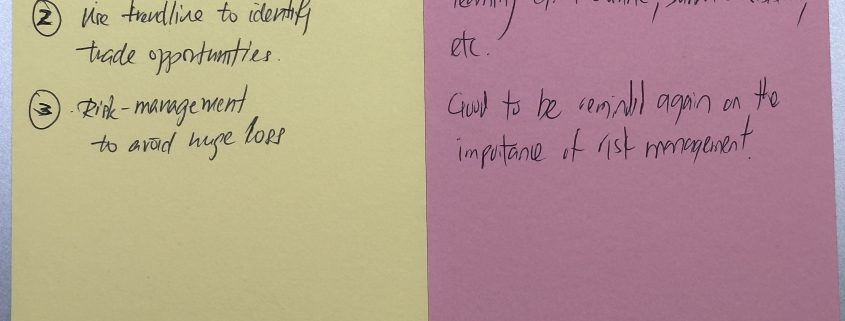 ② Use trendline to identify
trade opportunities.
③ Risk-management
to avoid huge loss
etc.
Good to be remind again on the
importance of risk management.